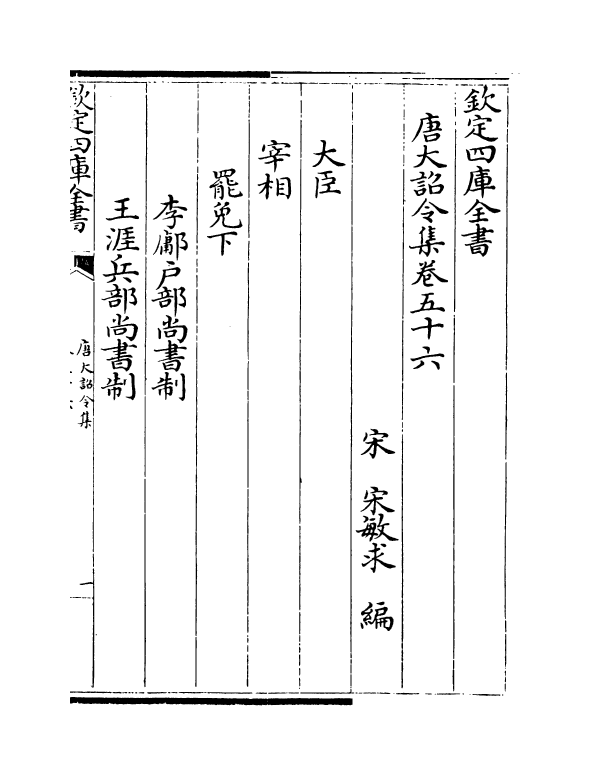 欽定四庫全書
唐大詔令集卷五十六
宋 宋敏求 編
大臣
宰相
罷免下
李鄘户部尚書制
王涯兵部尚書制
欽定四庫全書
唐大詔令集
一